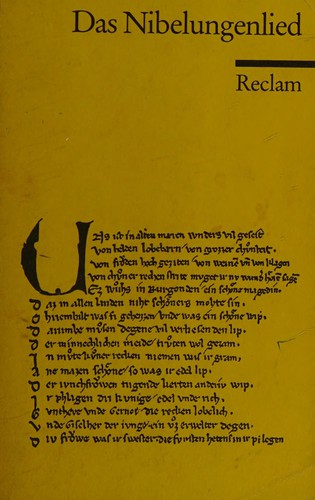 Das Nibelungenlied
Reclam
Uns ist in alten maren wnders vil geseit
von helden lobebærn von grozer chůnheit
von froͮden hochgeziten von weinen vñ von klagen
von chůner recken strite muget ir nv wnder horen sagen
Ez wůhs in Burgonden ein schone magedin
daz in allen landen niht schoners mohte sin
chriemhilt was si geheizen vnde was ein schone wip
darumbe můsen degene vil verliesen den lip
er minnechlichen meide truten wol gezam
n můte kůner recken niemen was ir gram
ne mazen schone so was ir edel lip
er iunchfrowen tugende zierten anderiv wip
ir phlagen driv kunige edel vnde rich
vnthere vnde Gernot die recken lobelich
nde Giselher der iunge ein vz erwelter degen
div frowe was ir swester die fvrsten hetens in ir pflegen